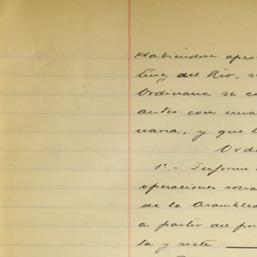 Habiéndose apro
ting del Río, s
Ordinaria se c
antes con una
naria, y que l
Orde
1º.- Informe
operaciones socia
de la Asamblea
a partir de pri
ta y siete